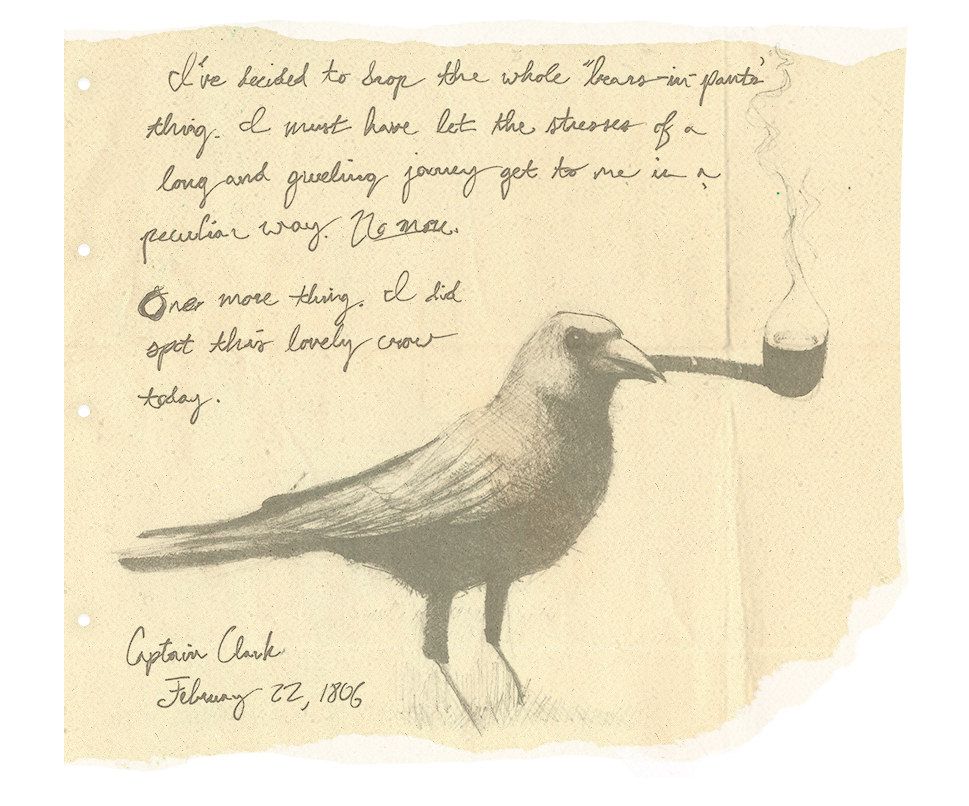 I've decided to drop the whole "bears-in-pants"
thing. I must have let the stresses of a
long and grueling journey get to me in a
peculiar way. No more.
One more thing. I did
spot this lovely crow
today.
Captain Clark
February 22, 1806